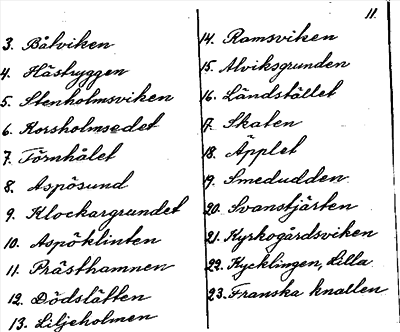 11.
3. Båtviken
4. Hästryggen
5. Stenholmsviken
6. Korsholmsedet
7. Törnhålet
8. Aspösund
9. Klockargrundet
10. Aspöklinten
11. Prästhamnen
12. Dödslätten
13. Liljeholmen
14. Ramsviken
15. Alviksgrunden
16. Ländstället
17. Skaten
18. Äpplet
19. Smedudden
20. Svanstjärten
21. Kyrkogårdsviken
22. Kycklingen, Lilla
23. Franska knallen